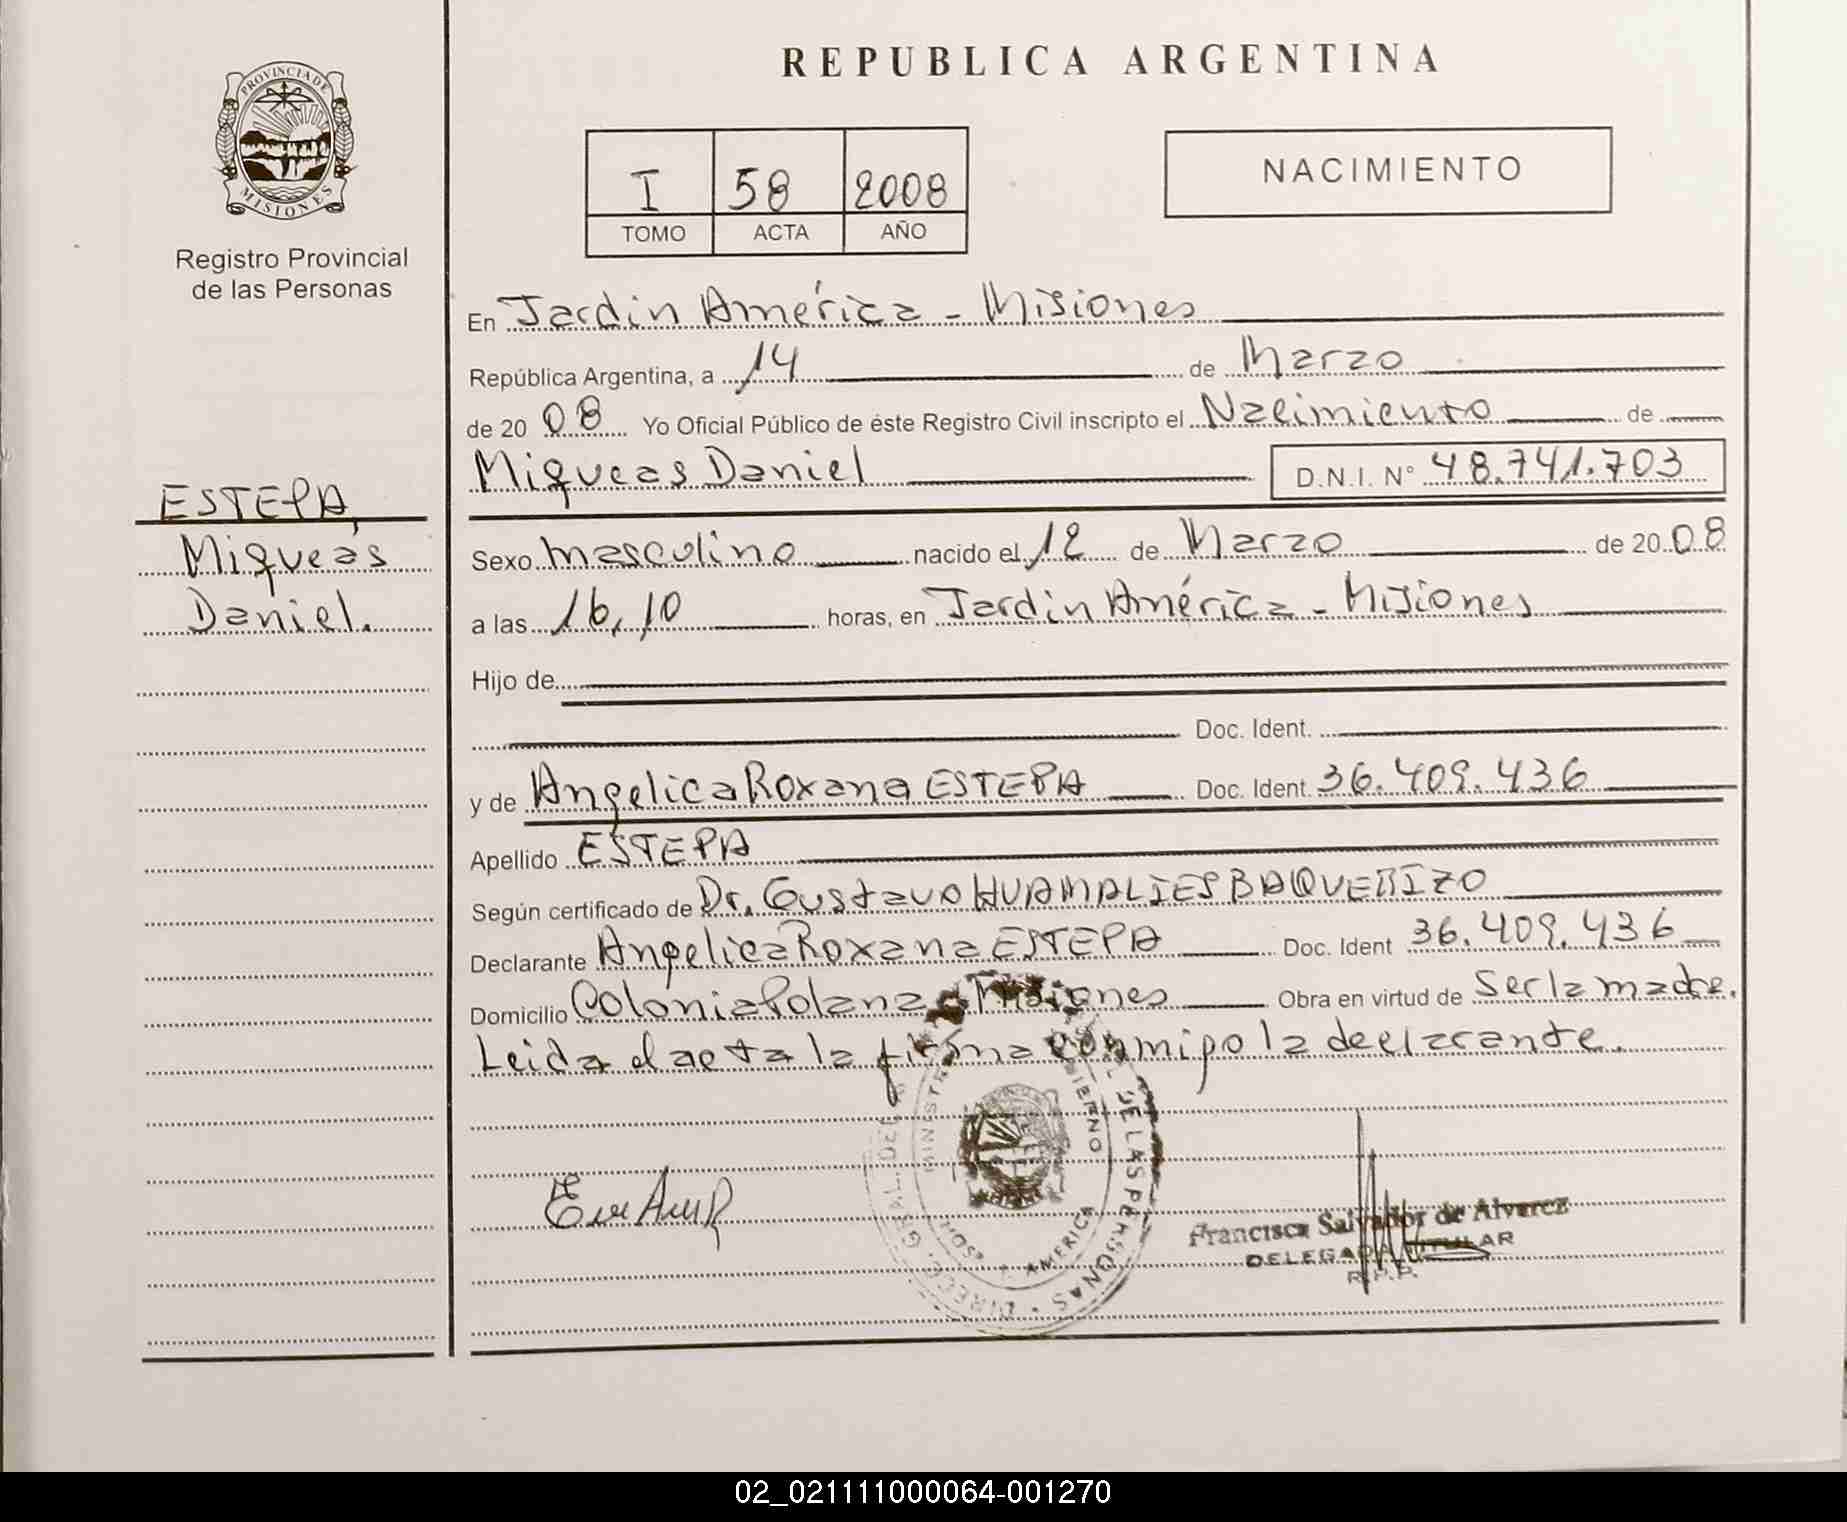 REPUBLICA ARGENTINA
PROVINCIA DE
MISIONES
Registro Provincial
de las Personas
I 58 2008
TOMO ACTA AÑO
NACIMIENTO
ESTEPA,
Miqueas
Daniel.
En Jardin América - Misiones
República Argentina, a 14 de Marzo
de 20 08 Yo Oficial Público de éste Registro Civil inscripto el Nacimiento de
Miqueas Daniel D.N.I. N° 48.741.703
Sexo masculino nacido el 12 de Marzo de 20 08
a las 16,10 horas, en Jardin América - Misiones
Hijo de
Doc. Ident.
y de Angelica Roxana ESTEPA Doc. Ident. 36.409.436
Apellido ESTEPA
Según certificado de Dr. Gustavo HUAMALIES BAQUERIZO
Declarante Angelica Roxana ESTEPA Doc. Ident 36.409.436
Domicilio Colonia Polana - Misiones Obra en virtud de Ser la madre.
Leida el acta la firma conmigo la declarante.
DE LAS PERSONAS
AMERICA
Francisca Salvador de Alvarez
DELEGADA TITULAR
R.P.P.
02_021111000064-001270